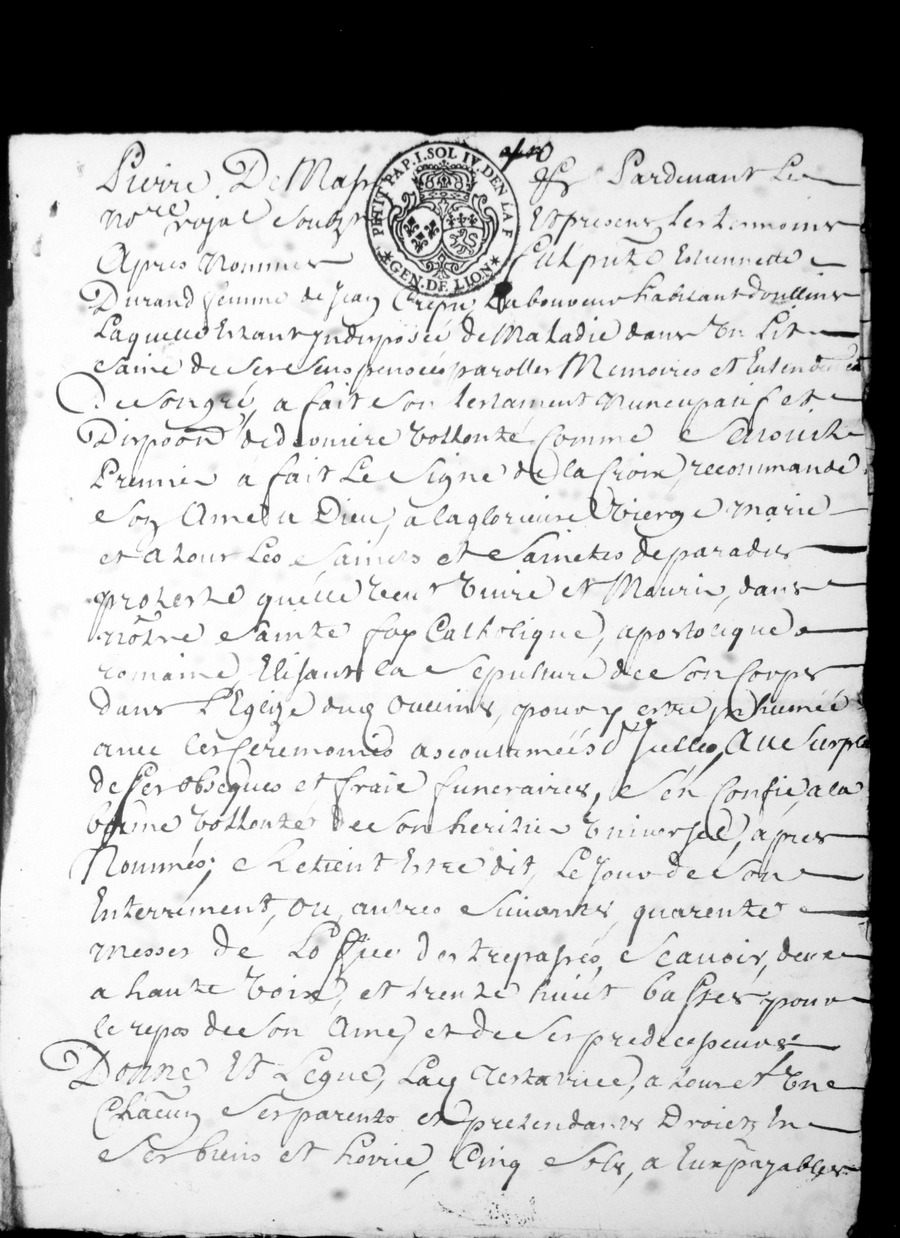 PETIT PAP. I. SOL IV. DEN LA F
GEN. DE LION
Pierre De Mass Pardevant Le
No.re roial soubz Et presens les tesmoins
Apres Nommes fut p.nte Estiennette
Durand femme de Jean Crepu Laboureur habitant doullins
Laquelle Estant Indisposée de Maladie dans Un Lit
saine de ses sens pensées parolles Memoires et Entendement
De son gré, a fait son testament Nuncupatif et
Dispoon de derniere vollonté comme sensuit
Premier a fait Le Signe de la Croix, recommande
son Ame a Dieu, a la glorieuse Vierge Marie
et a tous Les Saints et Saintes de paradis
proteste quelle veut vivre et Mourir, dans
nôtre sainte foy Catholique, apostolique
romaine Elisant la Sepulture de son Corps
dans L'Eglize dud Oullins, pour y estre Inhumée
avec les Ceremonies acoutumées d'Icelles, Au surplus
de ses obseques et frais funeraires, s'en Confie, a la
bonne vollonté de son heritier Universel, aprés
Nommés, Et Estre dit, Le Jour de son
Enterrement, ou autres suivants, quarente
messes de L'office des trepassés, scavoir, deux
a haute voix, et trente huict basses pour
le repos de son Ame, et de ses predecesseurs
Donne Et Legue, Lad Testatrice, a tous et Un
Chacun ses parents et pretendants Droicts En
ses biens et hoirie, Cinq Sols, a Eux payables